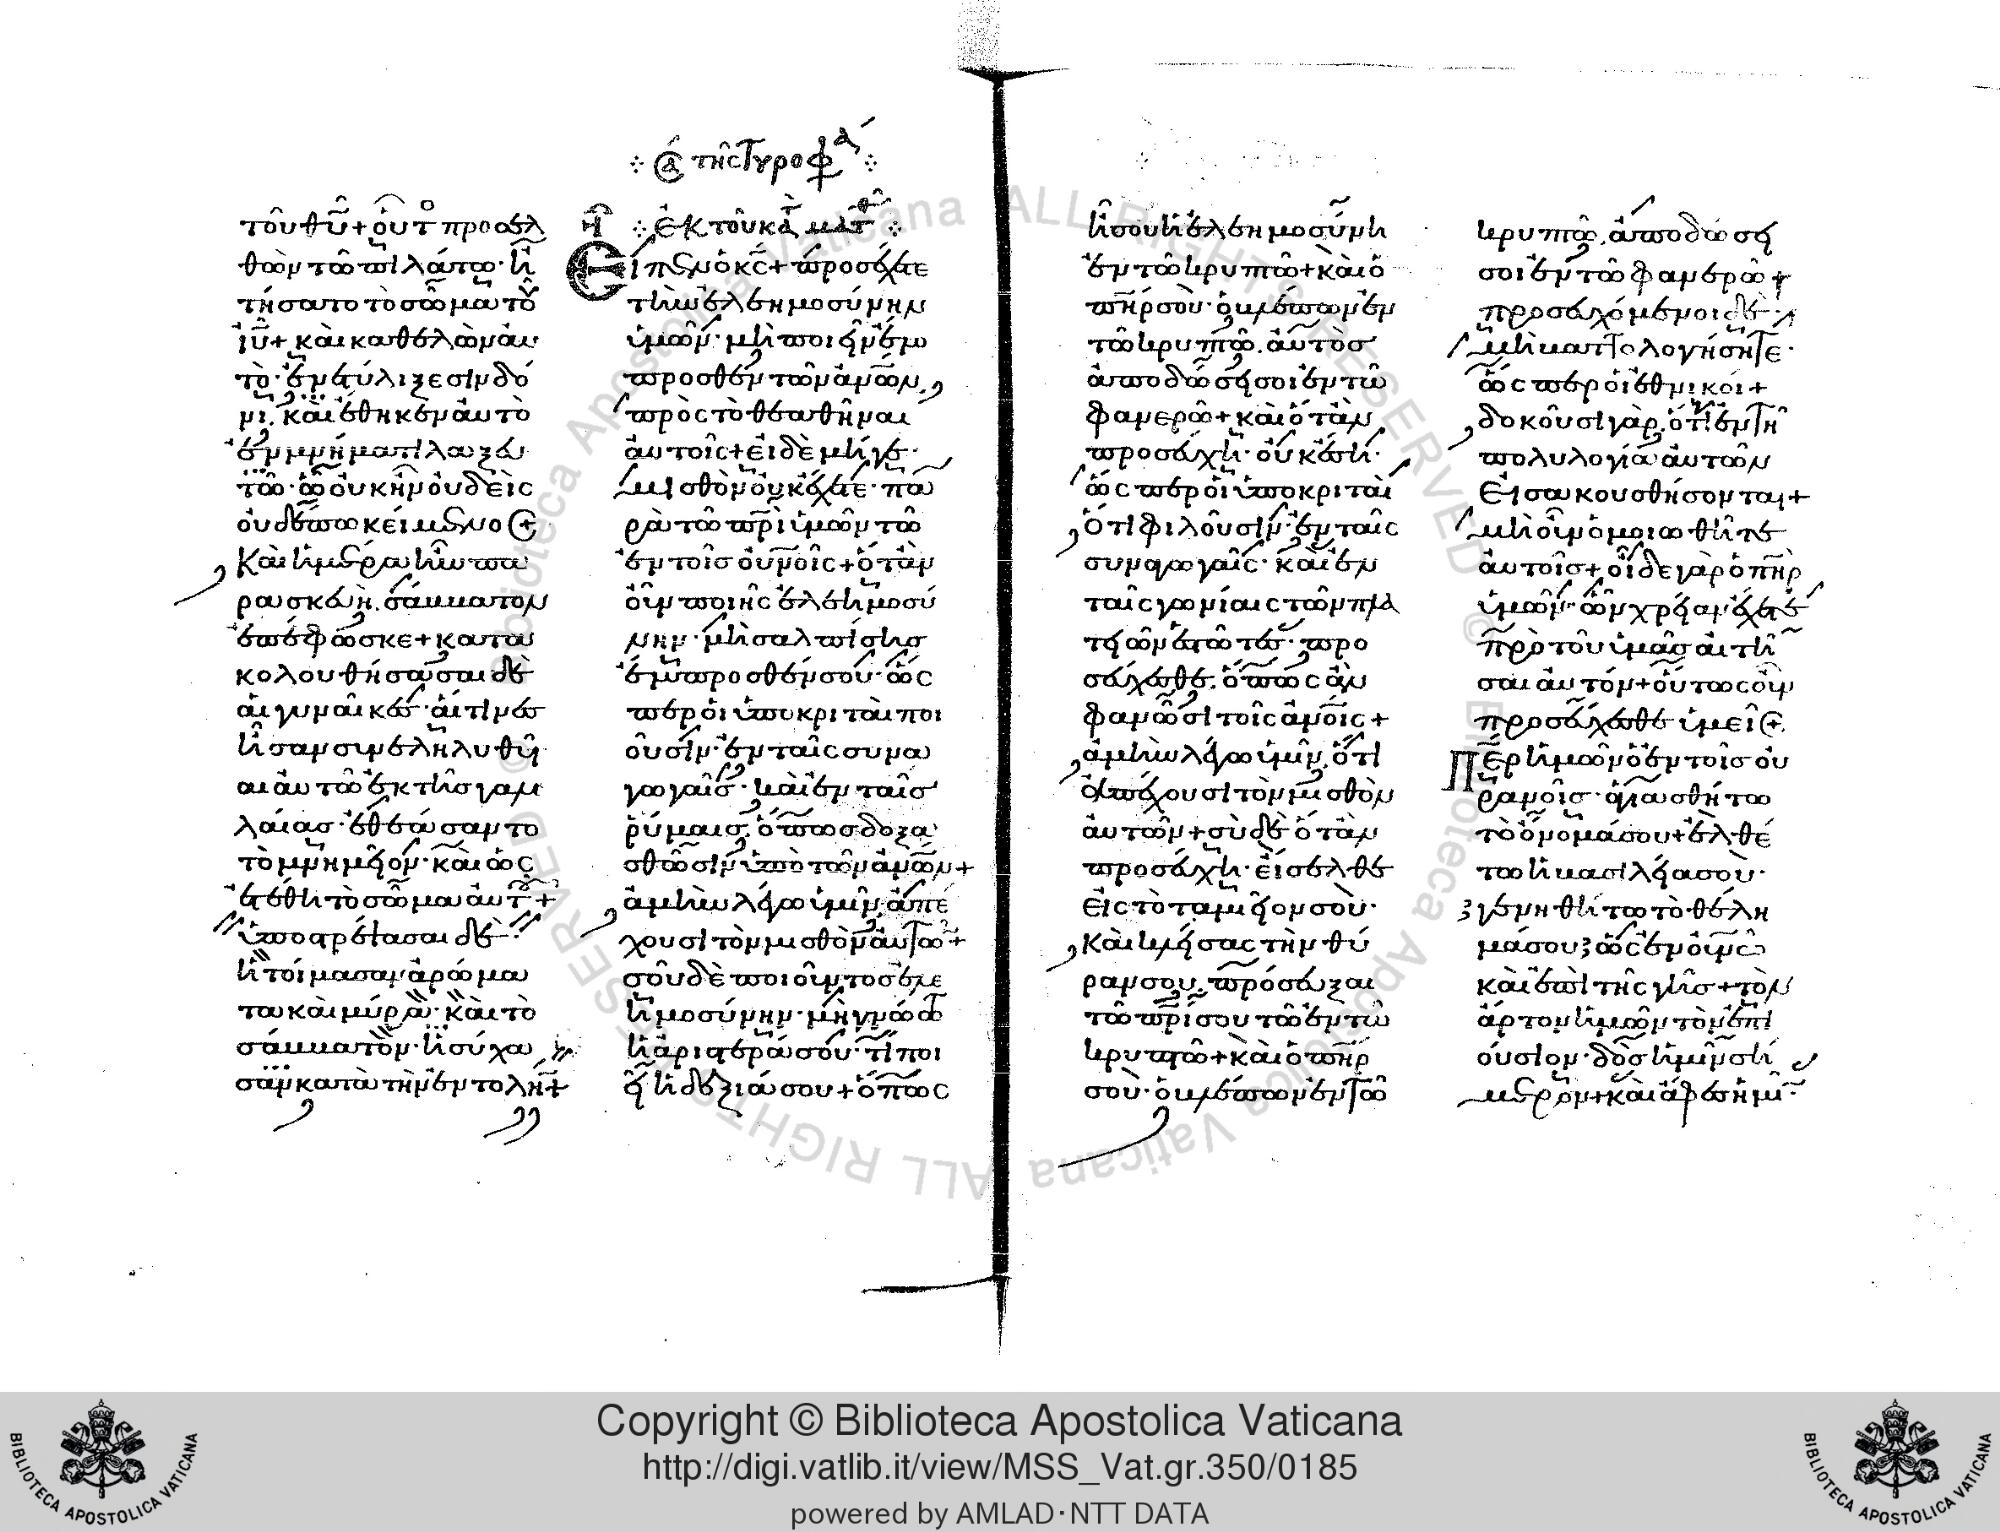 τοῦ θῦ + οὗτο προσελ
θὼν τῶ πιλάτω· ἠ
τήσατο τὸ σῶμα τοῦ
ἰῦ + καὶ καθελὼν αὐ
τὸ· ἐνετύλιξε σινδό
νι, καὶ ἔθηκεν αὐτὸ
ἐν μνήματι λαξευ
τῶ· ὧ οὐκ ἦν οὐδεὶς
οὐδέπω κείμενος +
Καὶ ἡμέρα ἦν πα
ρασκευὴ, σάββατον
ἐπέφωσκε + κατα
κολουθήσασαι δὲ
αἱ γυναῖκες· αἵτινες
ἦσαν συνεληλυθυῖ
αι αὐτῶ ἐκ τῆς γαλι
λαίας· ἐθεάσαντο
τὸ μνημεῖον· καὶ ὡς
ἐτέθη τὸ σῶμα αὐτοῦ +
ὑποστρέψασαι δὲ·
ἡτοίμασαν ἀρώμα
τα καὶ μύρα· καὶ τὸ
σάββατον· ἡσύχα
σαν κατὰ τὴν ἐντολήν +
Σα της τυροφα
ἐκ τοῦ κατὰ ματθ
Εἶπεν ὁ κς + προσέχετε
τὴν ἐλεημοσύνην
ὑμῶν· μὴ ποιεῖν ἔμ
προσθεν τῶν ἀνων,
πρὸς τὸ θεαθῆναι
αὐτοῖς + εἰ δὲ μή γε·
μισθὸν οὐκ ἔχετε· πα
ρὰ τῶ πρὶ ὑμῶν τῶ
ἐν τοῖς οὐνοῖς + ὅταν
οὖν ποιῆς ἐλεημοσύ
νην· μὴ σαλπίσης
ἔμπροσθέν σου· ὥς
περ οἱ ὑποκριταὶ ποι
οῦσιν· ἐν ταῖς συνα
γωγαῖς· καὶ ἐν ταῖς
ῥύμαις, ὅπως δοξα
σθῶσιν ὑπὸ τῶν ἀνων +
ἀμὴν λέγω ὑμῖν, ἀπέ
χουσι τὸν μισθὸν αὐτῶν +
σοῦ δὲ ποιοῦντος ἐλε
ημοσύνην· μὴ γνώτω
ἡ ἀριστερά σου· τί ποι
εῖ ἡ δεξιά σου + ὅπως
ἦ σου ἡ ἐλεημοσύνη
ἐν τῶ κρυπτῶ + καὶ ὁ
πήρ σου· ὁ βλέπων ἐν
τῶ κρυπτῶ, αὐτὸς
ἀποδώσει σοι ἐν τῶ
φανερῶ + καὶ ὅταν
προσεύχη· οὐκ ἔση·
ὥσπερ οἱ ὑποκριταὶ
ὅτι φιλοῦσιν· ἐν ταῖς
συναγωγαῖς· καὶ ἐν
ταῖς γωνίαις τῶν πλα
τειῶν ἑστῶτες· προ
σεύχεσθε, ὅπως ἂν
φανῶσι τοῖς ἀνοις +
ἀμὴν λέγω ὑμῖν, ὅτι
ἀπέχουσι τὸν μισθὸν
αὐτῶν + σὺ δὲ ὅταν
προσεύχη· εἴσελθε
εἰς τὸ ταμιεῖον σου·
καὶ κλείσας τὴν θύ
ραν σου, πρόσευξαι
τῶ πρί σου τῶ ἐν τῶ
κρυπτῶ + καὶ ὁ πήρ
σου· ὁ βλέπων ἐν τῶ
κρυπτῶ, ἀποδώσει
σοι ἐν τῶ φανερῶ +
προσευχόμενοι δὲ·
μὴ βαττολογήσητε·
ὥσπερ οἱ ἐθνικοί +
δοκοῦσι γὰρ, ὅτι ἐν τῆ
πολυλογία αὐτῶν
εἰσακουσθήσονται +
μὴ οὖν ὁμοιωθῆτε
αὐτοῖς + οἶδε γὰρ ὁ πὴρ
ὑμῶν· ὧν χρείαν ἔχετε
πρὸ τοῦ ὑμᾶς αἰτῆ
σαι αὐτόν + οὕτως οὖν
προσεύχεσθε ὑμεῖς +
Περ ἡμῶν ὁ ἐν τοῖς οὐ
ρανοῖς· ἁγιασθήτω
τὸ ὄνομά σου + ἐλθέ
τω ἡ βασιλεία σου·
γενηθήτω τὸ θέλη
μά σου ὡς ἐν οὐνῶ
καὶ ἐπὶ τῆς γῆς + τὸν
ἄρτον ἡμῶν τὸν ἐπι
ούσιον· δὸς ἡμῖν σή
μερον + καὶ ἄφες ἡμῖν·
BIBLIOTECA APOSTOLICA VATICANA
Copyright © Biblioteca Apostolica Vaticana
http://digi.vatlib.it/view/MSS_Vat.gr.350/0185
powered by AMLAD·NTT DATA
BIBLIOTECA APOSTOLICA VATICANA